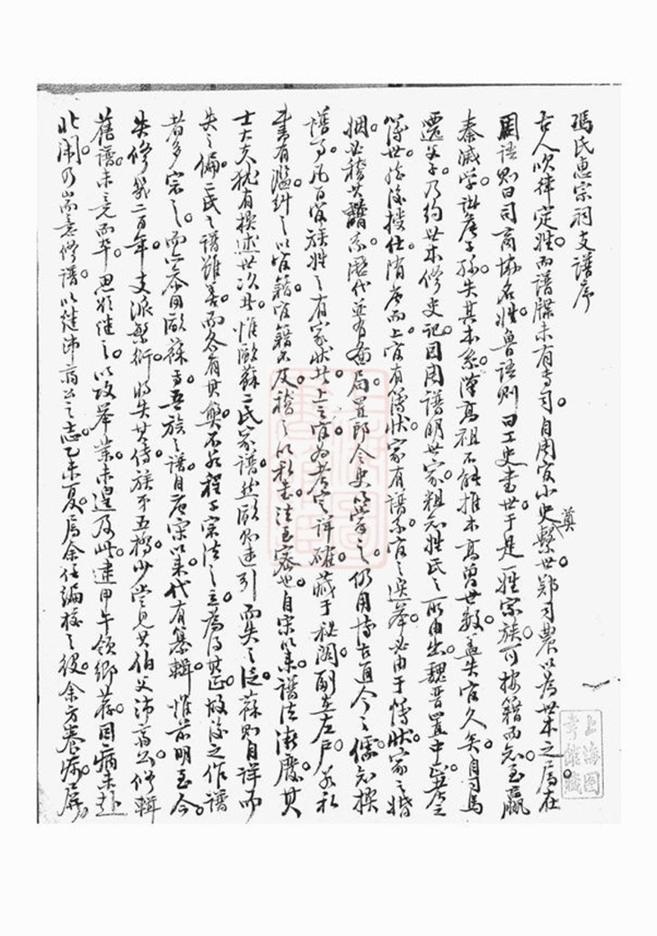 馮氏惠宗祠支譜序
古人吹律定姓而譜牒未有專司自周官小史奠繫世鄭司農以為世本之屬在
國語則曰司商協名姓魯語則曰工史書世于是姓宗族可按籍而知至嬴
秦滅學公侯子孫失其本系漢高祖不能推本高曾世數蓋失官久矣自司馬
遷父子乃約世本修史記因周譜明世家粗知姓氏之所由出魏晉置中正考之
簿世然後授仕隋唐而上官有簿狀家有譜系官之選舉必由于簿狀家之婚
姻必稽其譜系歷代並有圖局置郎令史以掌之仍用博古通今之儒知撰
譜事凡百官族姓之有家狀者上之官為考定詳確藏于秘閣副在左戶若私
書有濫糾之以官籍官籍不及稽之以私書法至密也自宋以來譜法漸廢其
士大夫猶有撰述世次者惟歐蘇二氏家譜然歐則遠引而失之泛蘇則自詳而
失之偏二氏之譜雖善而各有其弊不若程子宗法之立為得其正故後之作譜
者多宗之而亦參用歐蘇焉吾族之譜自唐宋以來代有纂輯惟前明至今
失修幾二百年支派繁衍將失其傳族弟五橋少嘗見其伯父沛翁公修輯
舊譜未竟而卒思欲繼之以攻舉業未遑及此逮甲午領鄉薦因病未赴
北闈乃耑意修譜以繼沛翁公之志乙未夏屬余任編校之役余方養疴屏
上海圖書館藏